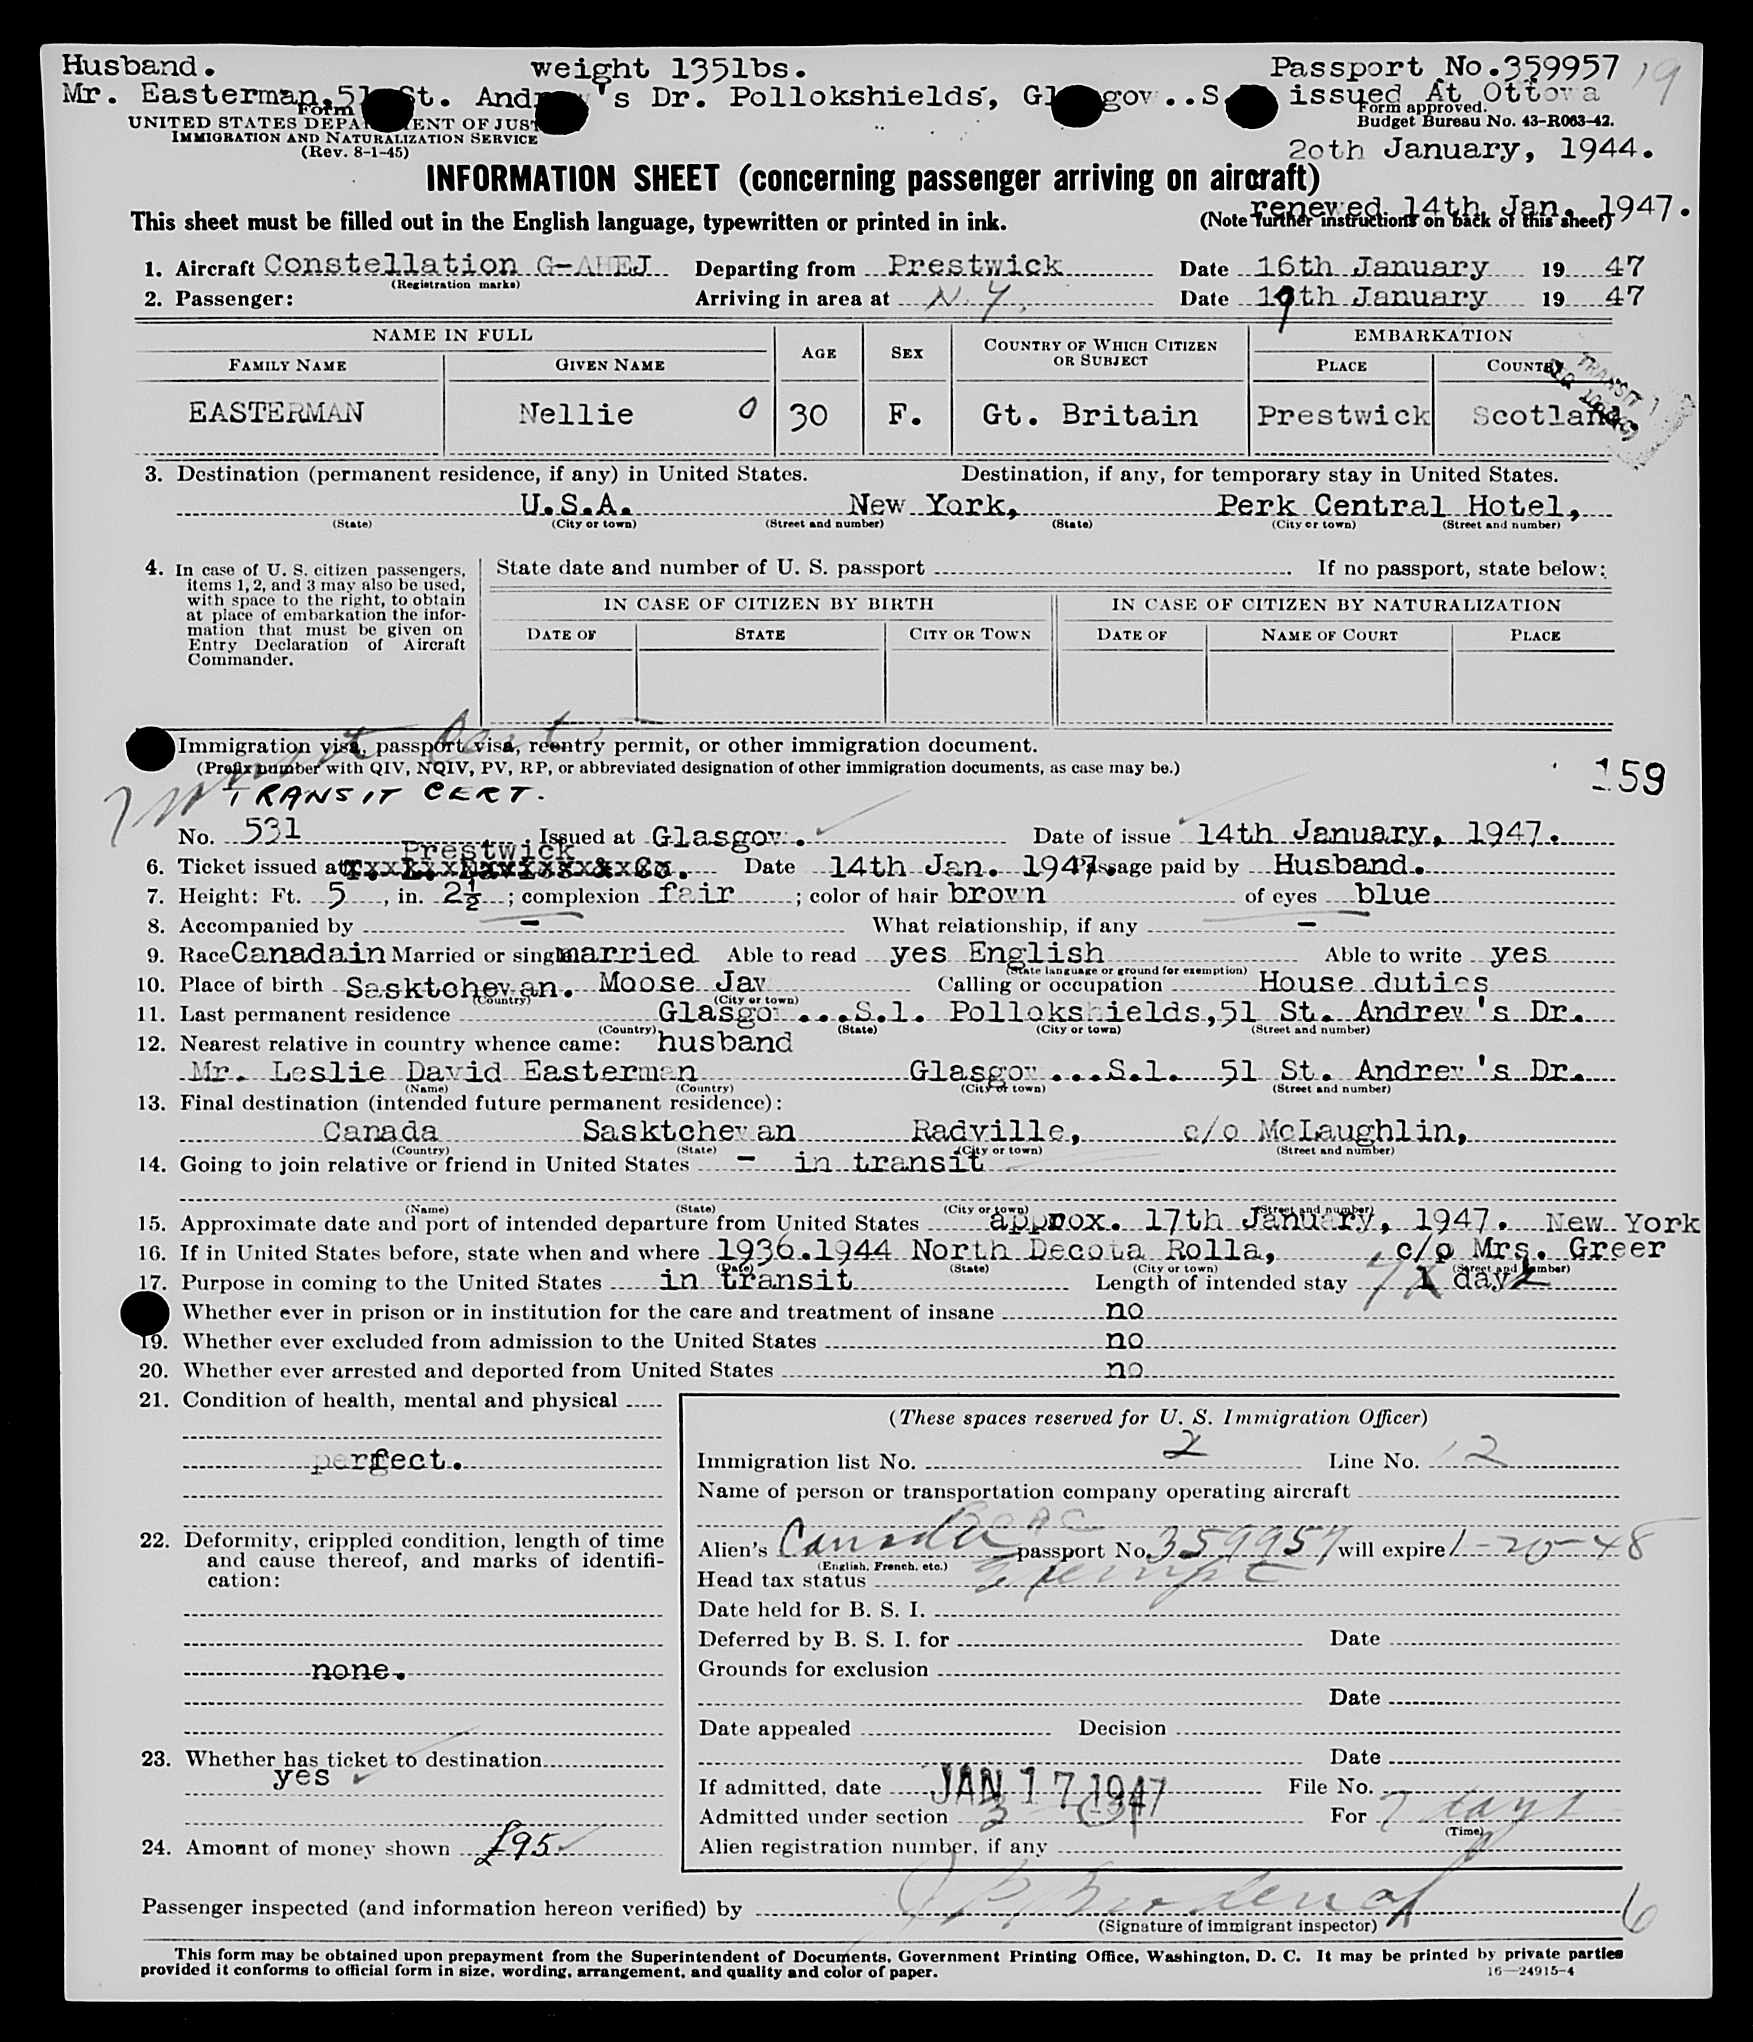 Husband. weight 135lbs. Passport No.359957 19
Mr. Easterman, 51 St. Andrew's Dr. Pollokshields, Glasgow..S. issued At Ottowa
Form Form approved.
UNITED STATES DEPARTMENT OF JUSTICE Budget Bureau No. 43-R063-42.
IMMIGRATION AND NATURALIZATION SERVICE
(Rev. 8-1-45) 20th January, 1944.
INFORMATION SHEET (concerning passenger arriving on aircraft)
renewed 14th Jan. 1947.
This sheet must be filled out in the English language, typewritten or printed in ink. (Note further instructions on back of this sheet)
1. Aircraft Constellation G-AHEJ Departing from Prestwick Date 16th January 19 47
(Registration marks)
2. Passenger: Arriving in area at N.Y. Date 17th January 19 47
NAME IN FULL AGE SEX COUNTRY OF WHICH CITIZEN OR SUBJECT EMBARKATION
FAMILY NAME GIVEN NAME PLACE COUNTRY
TRANSIT
EASTERMAN Nellie 0 30 F. Gt. Britain Prestwick Scotland.
3. Destination (permanent residence, if any) in United States. Destination, if any, for temporary stay in United States.
U.S.A. New York, Perk Central Hotel,
(State) (City or town) (Street and number) (State) (City or town) (Street and number)
4. In case of U. S. citizen passengers, items 1, 2, and 3 may also be used, with space to the right, to obtain at place of embarkation the information that must be given on Entry Declaration of Aircraft Commander.
State date and number of U. S. passport If no passport, state below:
IN CASE OF CITIZEN BY BIRTH IN CASE OF CITIZEN BY NATURALIZATION
DATE OF STATE CITY OR TOWN DATE OF NAME OF COURT PLACE
Immigration visa, passport visa, reentry permit, or other immigration document.
(Prefix number with QIV, NQIV, PV, RP, or abbreviated designation of other immigration documents, as case may be.)
159
TRANSIT CERT.
No. 531 Issued at Glasgow. Date of issue 14th January, 1947.
Prestwick
6. Ticket issued at Date 14th Jan. 1947. Passage paid by Husband.
7. Height: Ft. 5, in. 2½; complexion fair; color of hair brown of eyes blue
8. Accompanied by - What relationship, if any -
9. Race Canadain Married or single married Able to read yes English Able to write yes
(State language or ground for exemption)
10. Place of birth Sasktchewan. Moose Jaw Calling or occupation House duties
(Country) (City or town)
11. Last permanent residence Glasgow...S.1. Pollokshields, 51 St. Andrew's Dr.
(Country) (State) (City or town) (Street and number)
12. Nearest relative in country whence came: husband
Mr. Leslie David Easterman Glasgow...S.1. 51 St. Andrew's Dr.
(Name) (Country) (City or town) (Street and number)
13. Final destination (intended future permanent residence):
Canada Sasktchewan Radville, c/o McLaughlin,
(Country) (State) (City or town) (Street and number)
14. Going to join relative or friend in United States - in transit
(Name) (State) (City or town) (Street and number)
15. Approximate date and port of intended departure from United States approx. 17th January, 1947. New York
16. If in United States before, state when and where 1936.1944 North Decota Rolla, c/o Mrs. Greer
(Date) (State) (City or town) (Street and number)
17. Purpose in coming to the United States in transit Length of intended stay 7 1 day
Whether ever in prison or in institution for the care and treatment of insane no
19. Whether ever excluded from admission to the United States no
20. Whether ever arrested and deported from United States no
21. Condition of health, mental and physical
perfect.
22. Deformity, crippled condition, length of time and cause thereof, and marks of identification:
none.
23. Whether has ticket to destination
yes
24. Amount of money shown £95
(These spaces reserved for U. S. Immigration Officer)
Immigration list No. 2 Line No. 2
Name of person or transportation company operating aircraft
BOAC
Alien's Canada passport No. 359957 will expire 1-20-48
(English, French, etc.)
Head tax status Exempt
Date held for B. S. I.
Deferred by B. S. I. for Date
Grounds for exclusion
Date
Date appealed Decision
Date
If admitted, date JAN 17 1947 File No.
Admitted under section 3 (3) For 7 days
(Time)
Alien registration number, if any
Passenger inspected (and information hereon verified) by
(Signature of immigrant inspector) 6
This form may be obtained upon prepayment from the Superintendent of Documents, Government Printing Office, Washington, D. C. It may be printed by private parties
provided it conforms to official form in size, wording, arrangement, and quality and color of paper. 16—24915-4